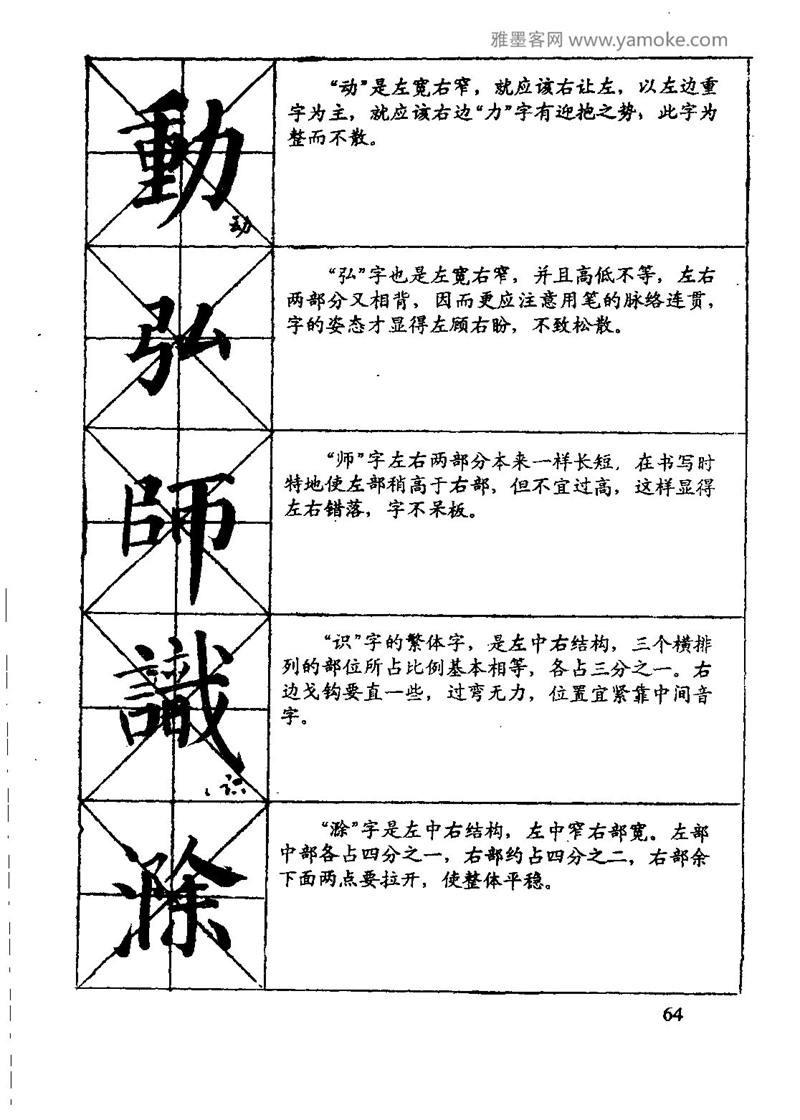 雅墨客网 www.yamoke.com
動
动
“动”是左宽右窄，就应该右让左，以左边重
字为主，就应该右边“力”字有迎抱之势，此字为
整而不散。
弘
“弘”字也是左宽右窄，并且高低不等，左右
两部分又相背，因而更应注意用笔的脉络连贯，
字的姿态才显得左顾右盼，不致松散。
師
“师”字左右两部分本来一样长短，在书写时
特地使左部稍高于右部，但不宜过高，这样显得
左右错落，字不呆板。
識
识
“识”字的繁体字，是左中右结构，三个横排
列的部位所占比例基本相等，各占三分之一。右
边戈钩要直一些，过弯无力，位置宜紧靠中间音
字。
滁
“滁”字是左中右结构，左中窄右部宽。左部
中部各占四分之一，右部约占四分之二，右部余
下面两点要拉开，使整体平稳。
64